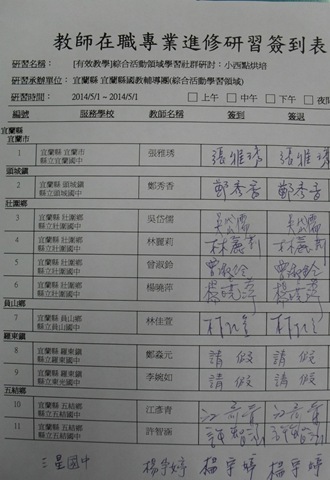 教師在職專業進修研習簽到表
研習名稱： [有效教學]綜合活動領域學習社群研討：小西點烘培
研習承辦單位： 宜蘭縣 宜蘭縣國教輔導團(綜合活動學習領域)
研習時間： 2014/5/1 ~ 2014/5/1 □上午 □中午 □下午 □夜間
編號 服務學校 教師名稱 簽到 簽退
宜蘭縣
宜蘭市
1 宜蘭縣 宜蘭市 縣立宜蘭國中 張雅琇 張雅琇 張雅琇
頭城鎮
2 宜蘭縣 頭城鎮 縣立頭城國中 鄭秀香 鄭秀香 鄭秀香
壯圍鄉
3 宜蘭縣 壯圍鄉 縣立壯圍國中 吳岱儒 吳岱儒 吳岱儒
4 宜蘭縣 壯圍鄉 縣立壯圍國中 林麗莉 林麗莉 林麗莉
5 宜蘭縣 壯圍鄉 縣立壯圍國中 曾淑鈴 曾淑鈴 曾淑鈴
6 宜蘭縣 壯圍鄉 縣立壯圍國中 楊曉萍 楊曉萍 楊曉萍
員山鄉
7 宜蘭縣 員山鄉 縣立員山國中 林佳萱
羅東鎮
8 宜蘭縣 羅東鎮 縣立羅東國中 鄭淼元 請假 請假
9 宜蘭縣 羅東鎮 縣立東光國中 李婉如 請假 請假
五結鄉
10 宜蘭縣 五結鄉 縣立五結國中 江彥青 江彥青 江彥青
11 宜蘭縣 五結鄉 縣立五結國中 許智涵 許智涵 許智涵
三星國中 楊宇婷 楊宇婷 楊宇婷